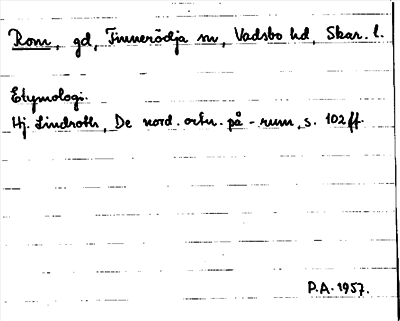 Rom, gd, Finnerödja sn, Vadsbo hd, Skar. l.
Etymologi.
Hj. Lindroth, De nord. ortn. på -rum, s. 102 ff.
P.A. 1957.